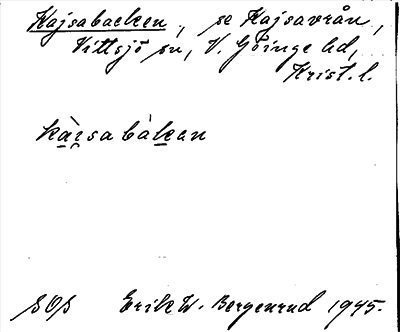 Kajsabacken, se Kajsavrån,
Vittsjö sn, V. Göinge hd,
Krist. l.
kài̯sabàkan
SOS Erik W. Bergenrud 1945.